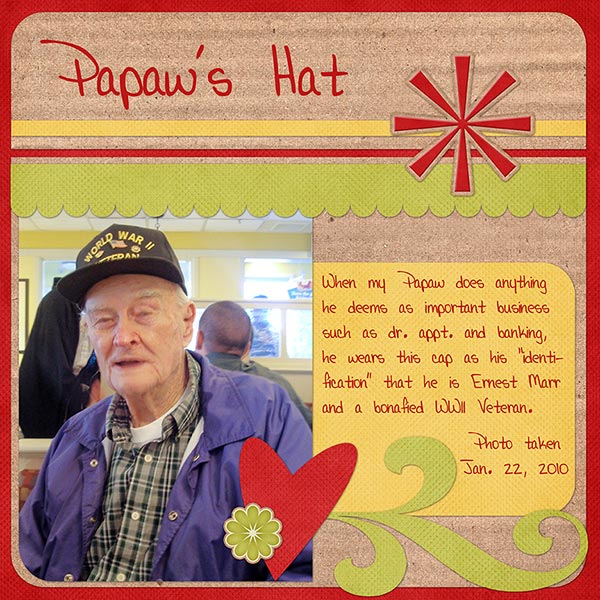 Papaw's Hat
WORLD WAR II
VETERAN
When my Papaw does anything
he deems as important business
such as dr. appt. and banking,
he wears this cap as his "identi-
fication" that he is Ernest Marr
and a bonafied WWII Veteran.
Photo taken
Jan. 22, 2010